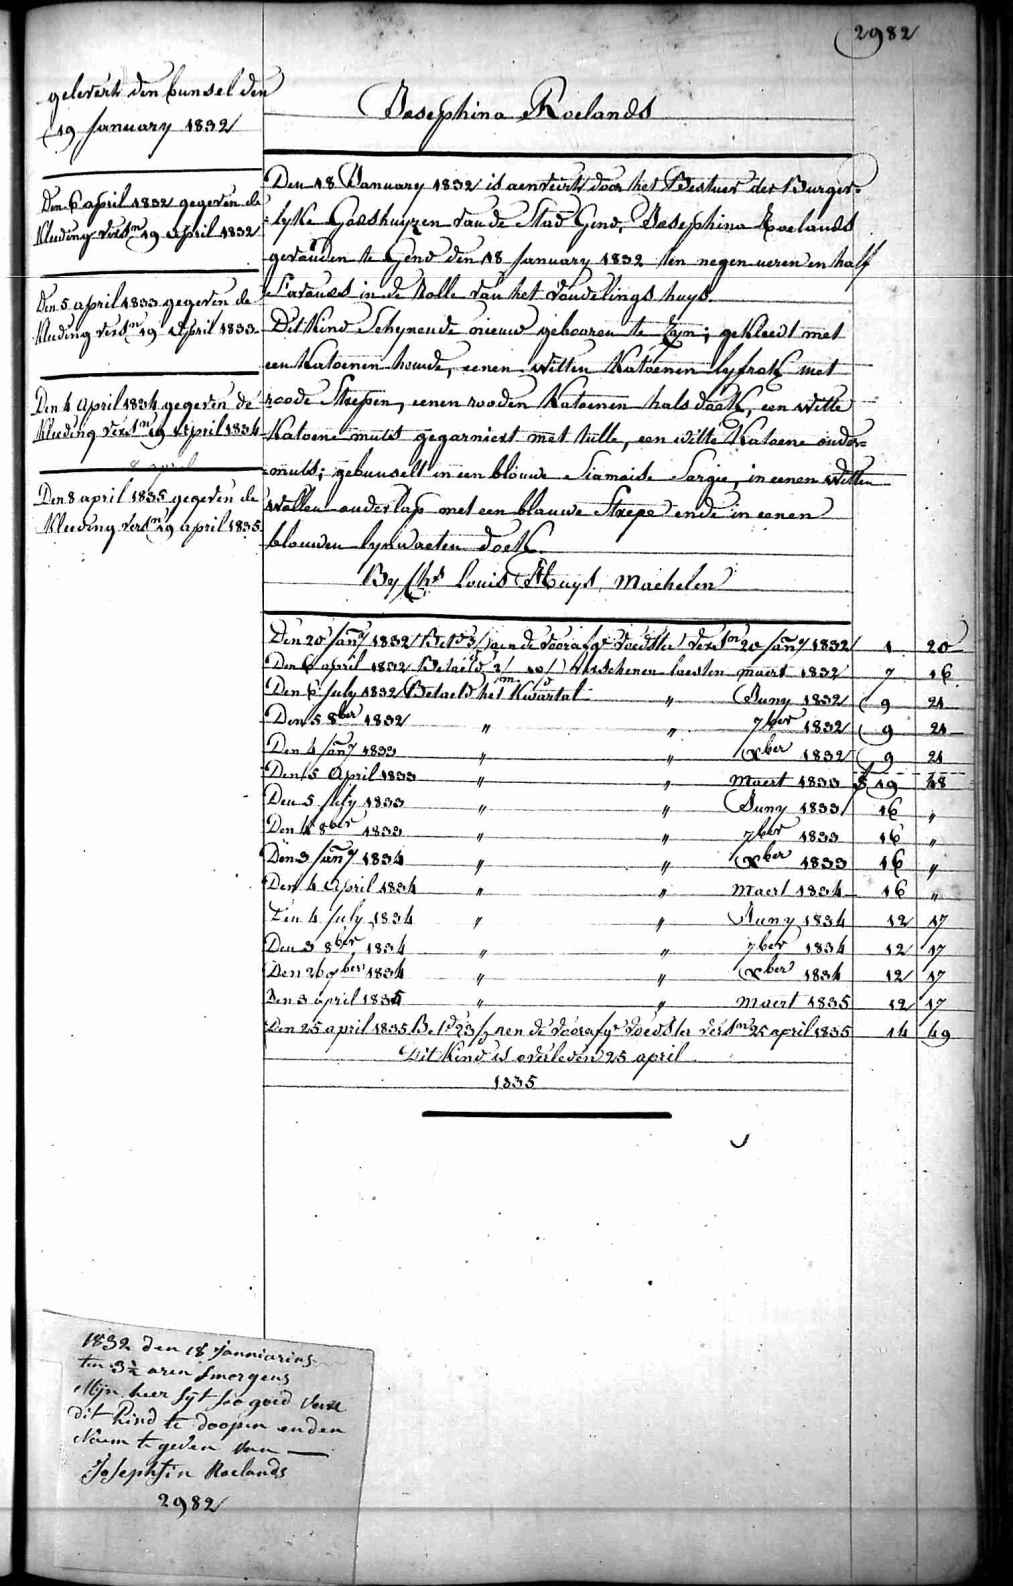 2982
gelevert den bunsel den
19 January 1832
Den 6 april 1832 gegeven de
kleeding versn 19 april 1832
Den 5 april 1833 gegeven de
kleeding versn 19 april 1833
Den 4 april 1834 gegeven de
kleeding versn 19 april 1834
Den 8 april 1835 gegeven de
kleeding versn 19 april 1835
Josephina Roelands
Den 18 January 1832 is aenveirt door het Bestuer der Burger=
lyke Godshuyzen van de Stad Gend, Josephina Roelands
gevonden te Gend den 18 January 1832 ten negen ueren en half
s'avonds in de Rolle van het vondelings huys.
Dit Kind Schynende nieuw gebooren te zyn; gekleedt met
een Katoenen hemde, eenen witten Katoenen lyfrok met
roode Strepen, eenen rooden Katoenen halsdoek, een witte
Katoene muts gegarniert met tulle, een witte Katoene onder=
muts; gebunselt in een blouwe Siamoise Sargie, in eenen witten
wollen onderlap met een blauwe Strepe ende in eenen
blouwen lynwaeten doek.
By Chs Louis Huys, Machelen
Den 20 Jany 1832 Bet. 3/ aen de voorafge voedster versn 20 Jany 1832 1 20
Den 6 april 1832 Betaeld 2/ 10/ verschenen laesten maert 1832 7 16
Den 6 July 1832 Betaeld het Kwartal " Juny 1832 9 21
Den 5 8ber 1832 " " 7ber 1832 9 21
Den 4 Jany 1833 " " Xber 1832 9 21
Den 5 April 1833 " " Maert 1833 19 48
Den 5 July 1833 " " Juny 1833 16 "
Den 4 8ber 1833 " " 7ber 1833 16 "
Den 3 Jany 1834 " " Xber 1833 16 "
Den 4 April 1834 " " Maert 1834 16 "
Den 4 July 1834 " " Juny 1834 12 17
Den 3 8ber 1834 " " 7ber 1834 12 17
Den 26 ber 1834 " " Xber 1834 12 17
Den 3 april 1835 " " Maert 1835 12 17
Den 25 april 1835 Betd 23/ aen de voorafge voedster versn 25 april 1835 14 49
Dit Kind is overleden 25 april
1835
1832 den 18 Janniarius
ten 3½ uren smorgens
Mijn heer sijt soo goed voor
dit Kind te doopen en den
Naem te geven van —
Josephin Roelands
2982